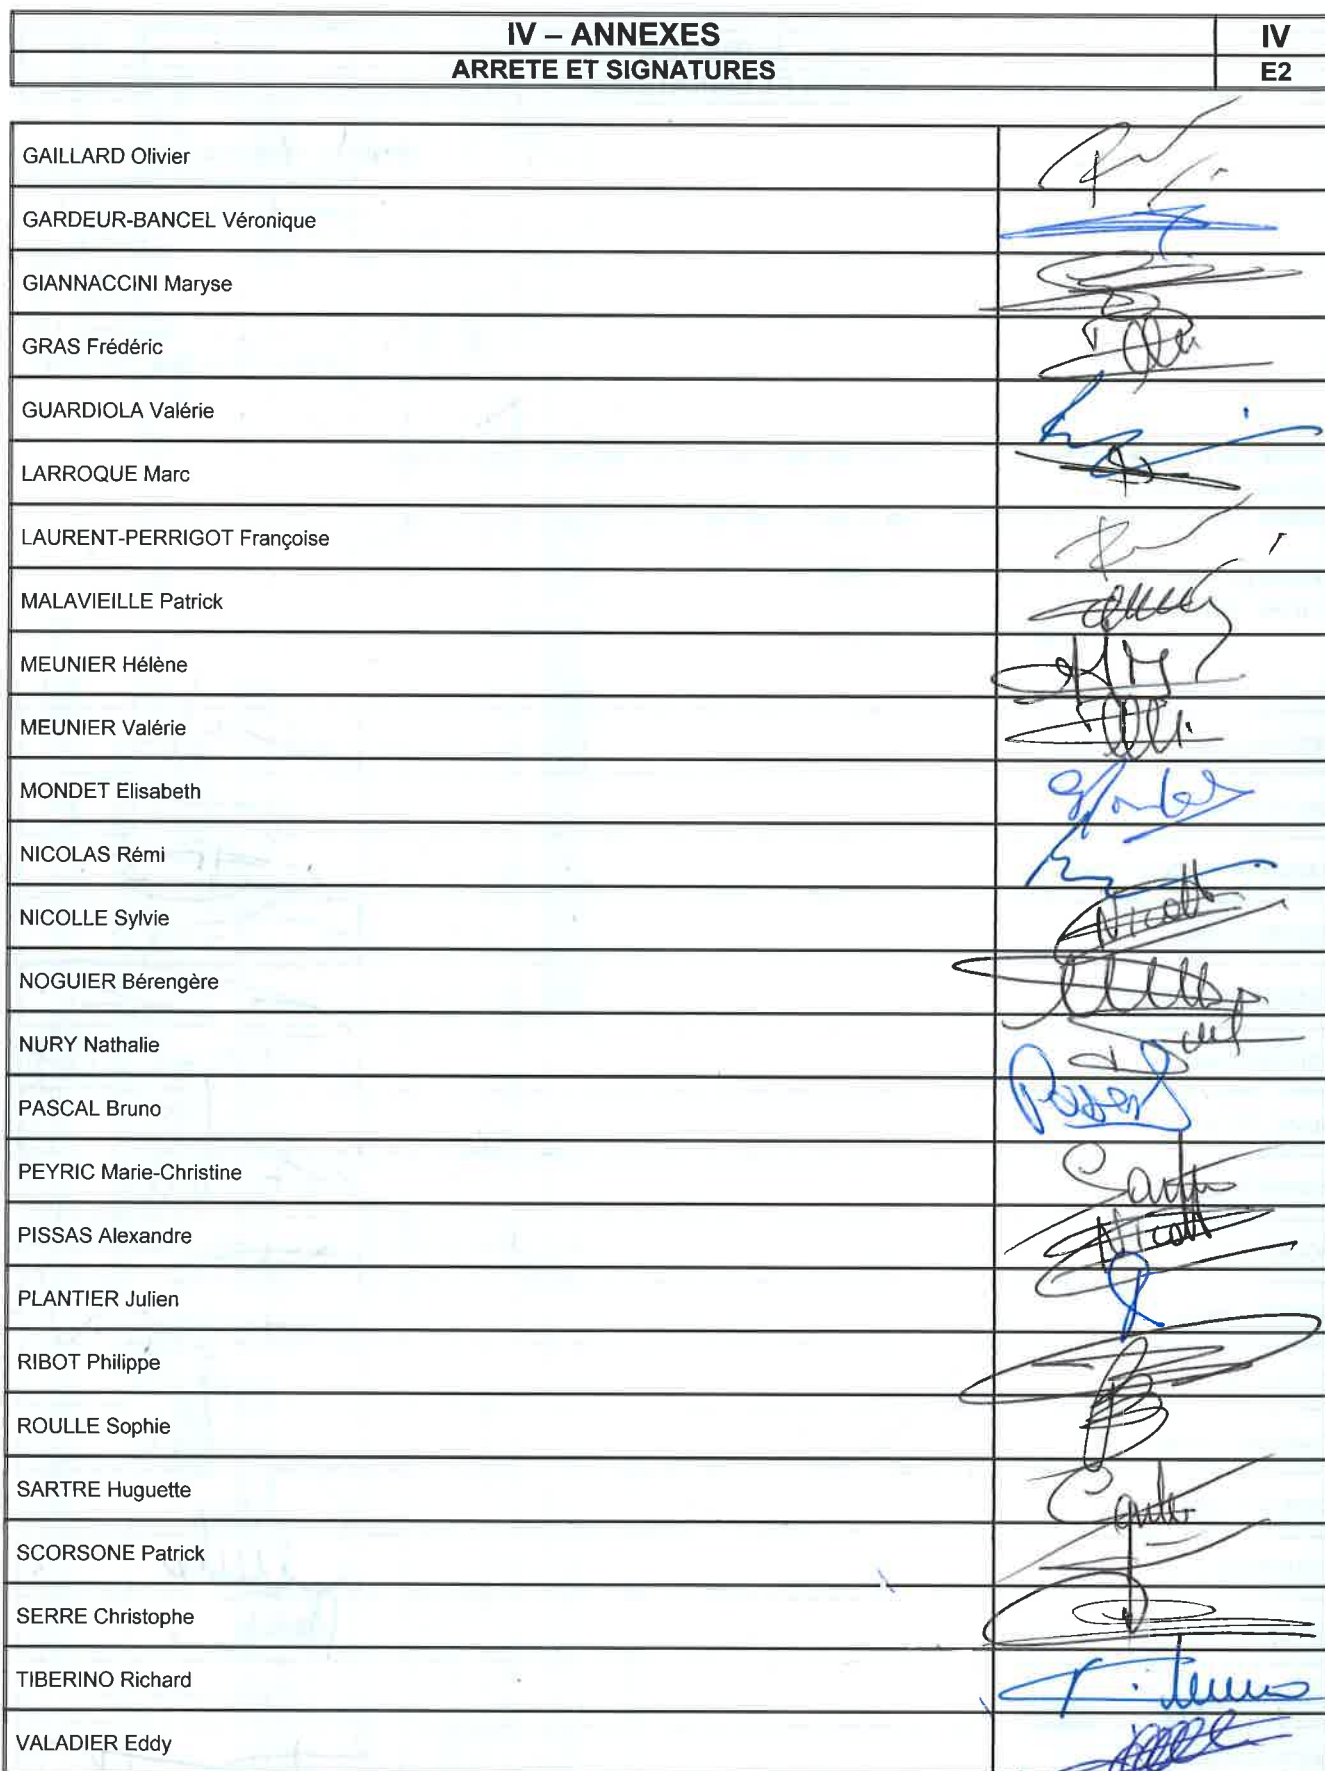 IV – ANNEXES IV
ARRETE ET SIGNATURES E2
GAILLARD Olivier
GARDEUR-BANCEL Véronique
GIANNACCINI Maryse
GRAS Frédéric
GUARDIOLA Valérie
LARROQUE Marc
LAURENT-PERRIGOT Françoise
MALAVIEILLE Patrick
MEUNIER Hélène
MEUNIER Valérie
MONDET Elisabeth
NICOLAS Rémi
NICOLLE Sylvie
NOGUIER Bérengère
NURY Nathalie
PASCAL Bruno
PEYRIC Marie-Christine
PISSAS Alexandre
PLANTIER Julien
RIBOT Philippe
ROULLE Sophie
SARTRE Huguette
SCORSONE Patrick
SERRE Christophe
TIBERINO Richard
VALADIER Eddy